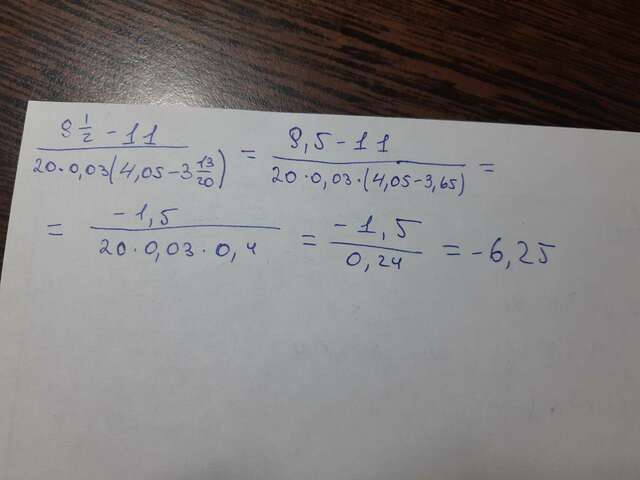 (9 1/2 - 11)/(20·0,03(4,05-3 13/20)) = (9,5-11)/(20·0,03·(4,05-3,65)) =
= (-1,5)/(20·0,03·0,4) = (-1,5)/(0,24) = -6,25